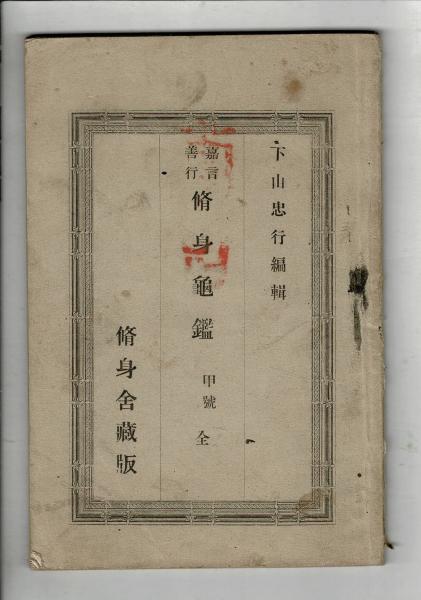 下山忠行編輯
嘉言
善行
脩身龜鑑 甲號 全
脩身舍藏版